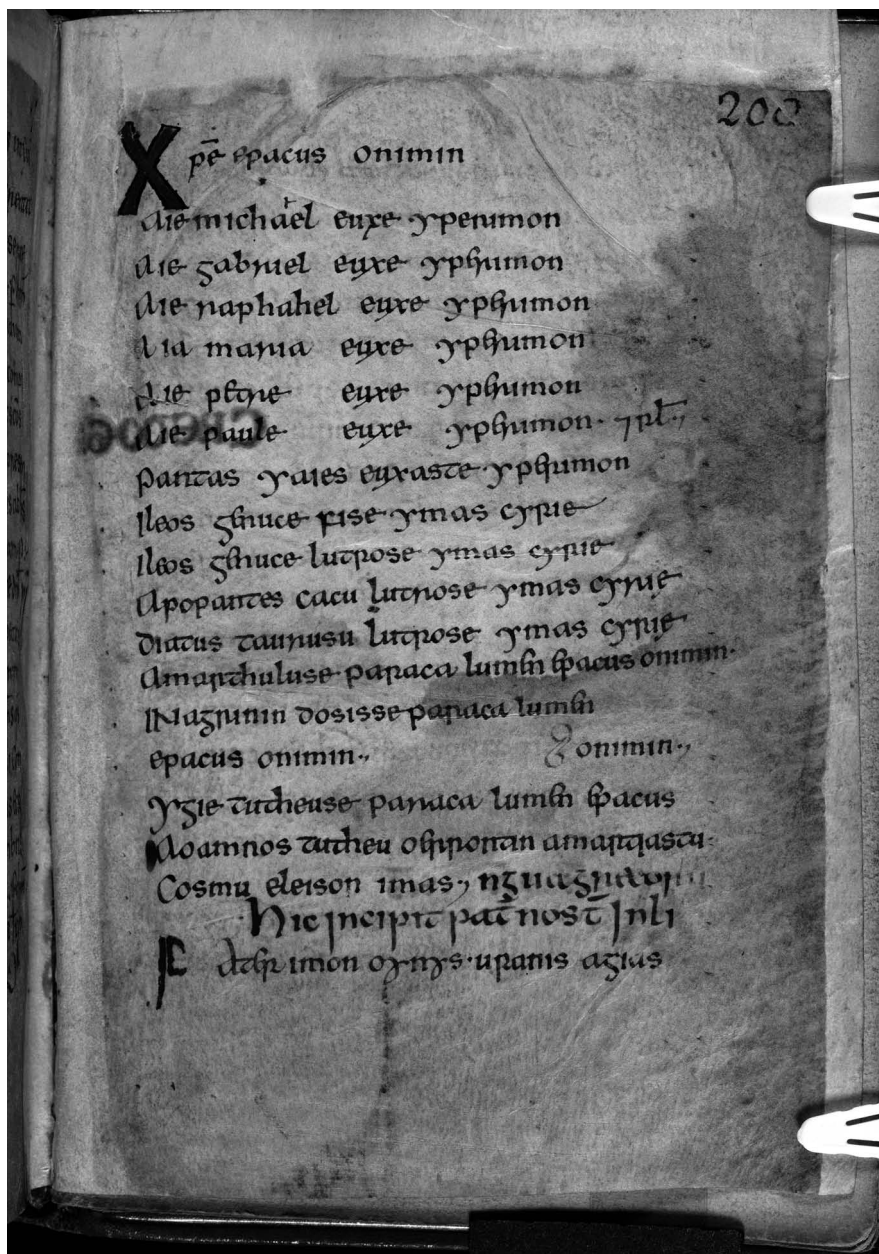 200
Xpē epacus onimin
Aie michael euxe yperumon
Aie gabriel euxe ypħrumon
Aie raphahel euxe ypħrumon
Aia maria euxe ypħrumon
Aie petre euxe ypħrumon
Aie paule euxe ypħrumon · ⁊rł
pantas yaies euxaste · ypħrumon
Ileos fise ymas cyrie
Ileos lutrose ymas cyrie
Apopantes cacu lutrose ymas cyrie
Diatus taurusu lutrose ymas cyrie
Amarthuluse paraca lumen epacus onimin ·
dosisse paraca lumen
epacus onimin · onimin ·
ygie tutheuse paraca lumen epacus
Aoamnos tutheu
Cosmu eleison imas
Hic incipit pat̄ nost̄ In
imon oynys · uranis agias